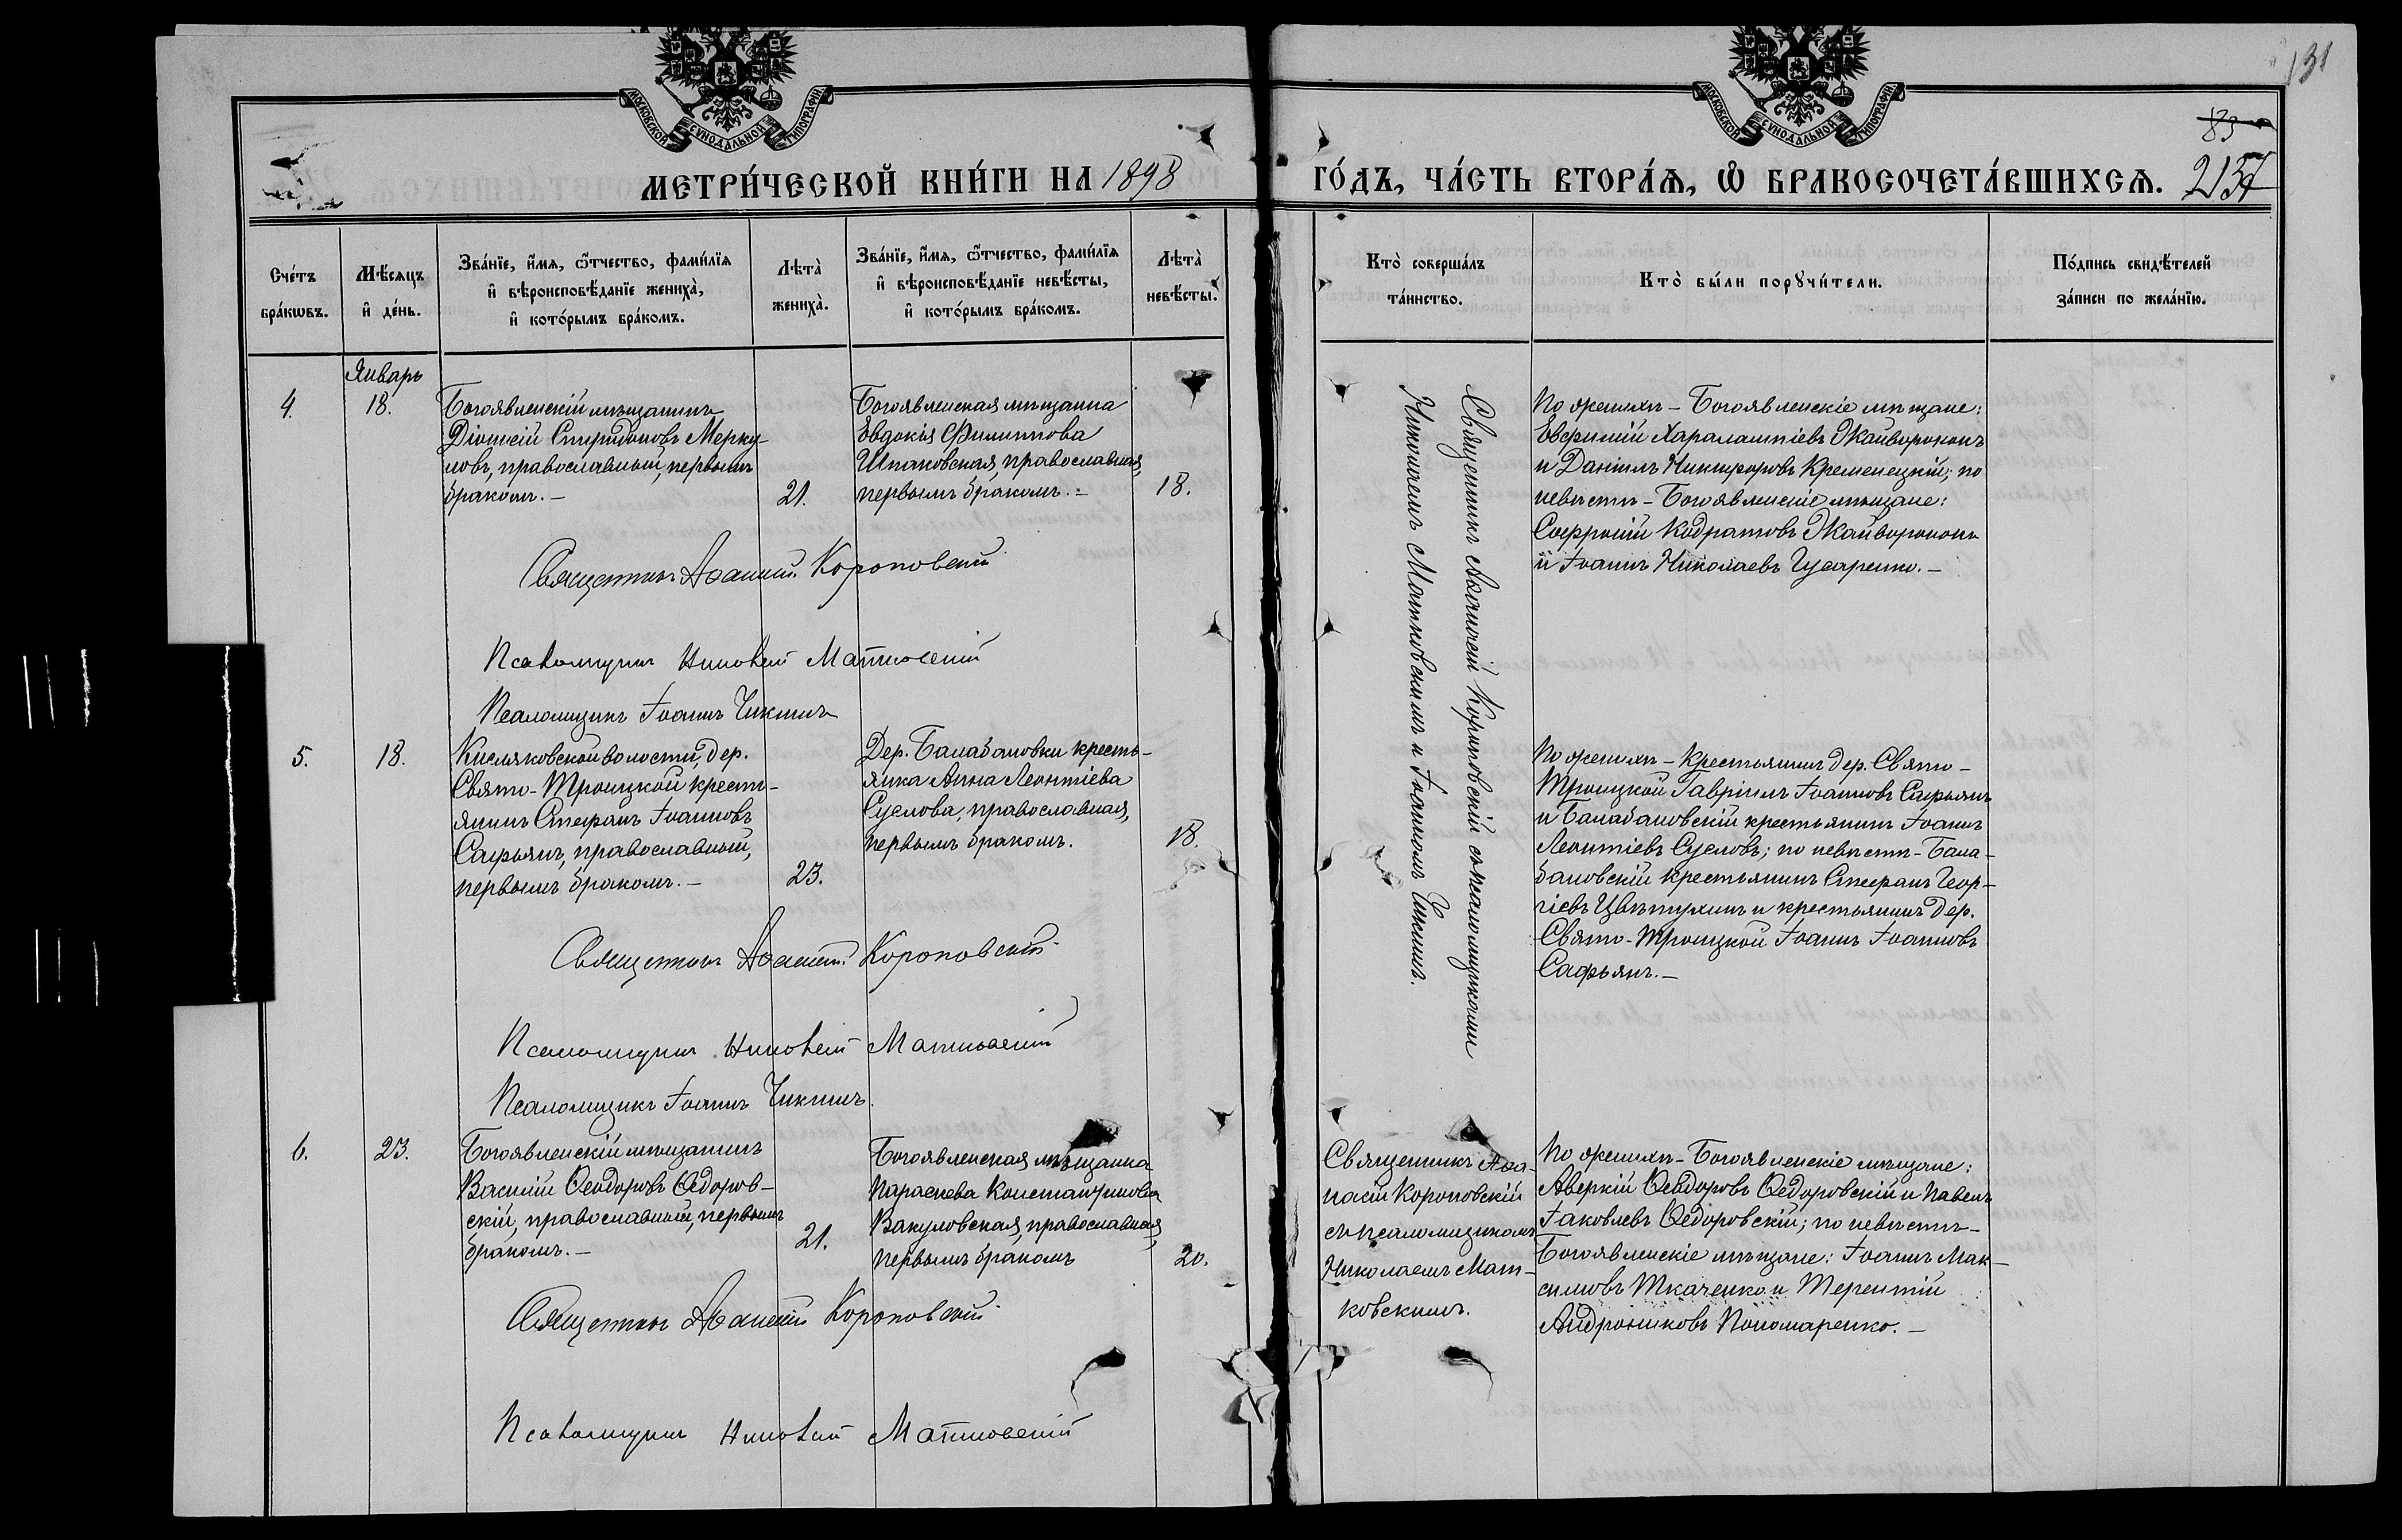 131
МОСКОВСКОЙ СУНОДАЛЬНОЙ ТИПОГРАФІИ
МОСКОВСКОЙ СУНОДАЛЬНОЙ ТИПОГРАФІИ
83
МЕТРИ́ЧЕСКОЙ КНИ́ГИ НА 1898
ГО́ДЪ, ЧА́СТЬ ВТОРА́Я, Ѡ БРАКОСОЧЕТА́ВШИХСЯ.
Сче́тъ
бра́кωвъ.
Мѣ́сяцъ
и҆ де́нь.
Зва́нїе, и҆́мя, ѻ҆́тчество, фами́лїя
и҆ вѣроисповѣ́данїе жениха̀,
и҆ кото́рымъ бра́комъ.
Лѣта̀
жениха̀.
Зва́нїе, и҆́мя, ѻ҆́тчество, фами́лїя
и҆ вѣроисповѣ́данїе невѣ́сты,
и҆ кото́рымъ бра́комъ.
Лѣта̀
невѣ́сты.
Кто̀ соверша́лъ
та́инство.
Кто̀ бы́ли порꙋчи́тели.
По́дпись свидѣ́телей
за́писи по жела́нїю.
Январь
4.
18.
Богоявленскій мѣщанинъ
Діонисій Спиридоновъ Мерку-
ловъ, православный, первымъ
бракомъ.-
21.
Богоявленская мѣщанка
Евдокія Филиппова
Шпаковская, православная,
первымъ бракомъ.-
18.
Священникъ Аѳанасій Короповскій съ псаломщиками
Николаемъ Матковскимъ и Іоанномъ Чикинъ.
По женихѣ - Богоявленскіе мѣщане:
Евфимій Харалампіевъ Жайворонокъ
и Даніилъ Никифоровъ Кременецкій; по
невѣстѣ - Богоявленскіе мѣщане:
Софроній Кодратовъ Жайворонокъ
и Іоаннъ Николаевъ Гусаренко.-
Священникъ Аѳанасій Короповскій
Псаломщикъ Николай Матковскій
Псаломщикъ Іоаннъ Чикинъ
5.
18.
Кисляковской волости, дер.
Свято-Троицкой кресть-
янинъ Стефанъ Іоанновъ
Сафьянъ, православный,
первымъ бракомъ.-
23.
Дер. Балабановки кресть-
янка Анна Леонтіева
Суслова, православная,
первымъ бракомъ.
18.
По женихѣ - Крестьянинъ дер. Свято-
Троицкой Гавріилъ Іоанновъ Сафьянъ
и Балабановскій крестьянинъ Іоаннъ
Леонтіевъ Сусловъ; по невѣстѣ - Бала-
бановскій крестьянинъ Стефанъ Геор-
гіевъ Цвѣтухинъ и крестьянинъ дер.
Свято-Троицкой Іоаннъ Іоанновъ
Сафьянъ.-
Священникъ Аѳанасій Короповскій
Псаломщикъ Николай Матковскій
Псаломщикъ Іоаннъ Чикинъ.
6.
23.
Богоявленскій мѣщанинъ
Василій Ѳеодоровъ Ѳедоров-
скій, православный, первымъ
бракомъ.-
21.
Богоявленская мѣщанка
Параскева Константинова
Вакуловская, православная,
первымъ бракомъ
20.
Священникъ Аѳа-
насій Короповскій
съ псаломщикомъ
Николаемъ Мат-
ковскимъ.
По женихѣ - Богоявленскіе мѣщане:
Аверкій Ѳеодоровъ Ѳедоровскій и Павелъ
Іаковлевъ Ѳедоровскій; по невѣстѣ -
Богоявленскіе мѣщане: Іоаннъ Мак-
симовъ Ткаченко и Терентій
Андрониковъ Пономаренко.-
Священникъ Аѳанасій Короповскій
Псаломщикъ Николай Матковскій